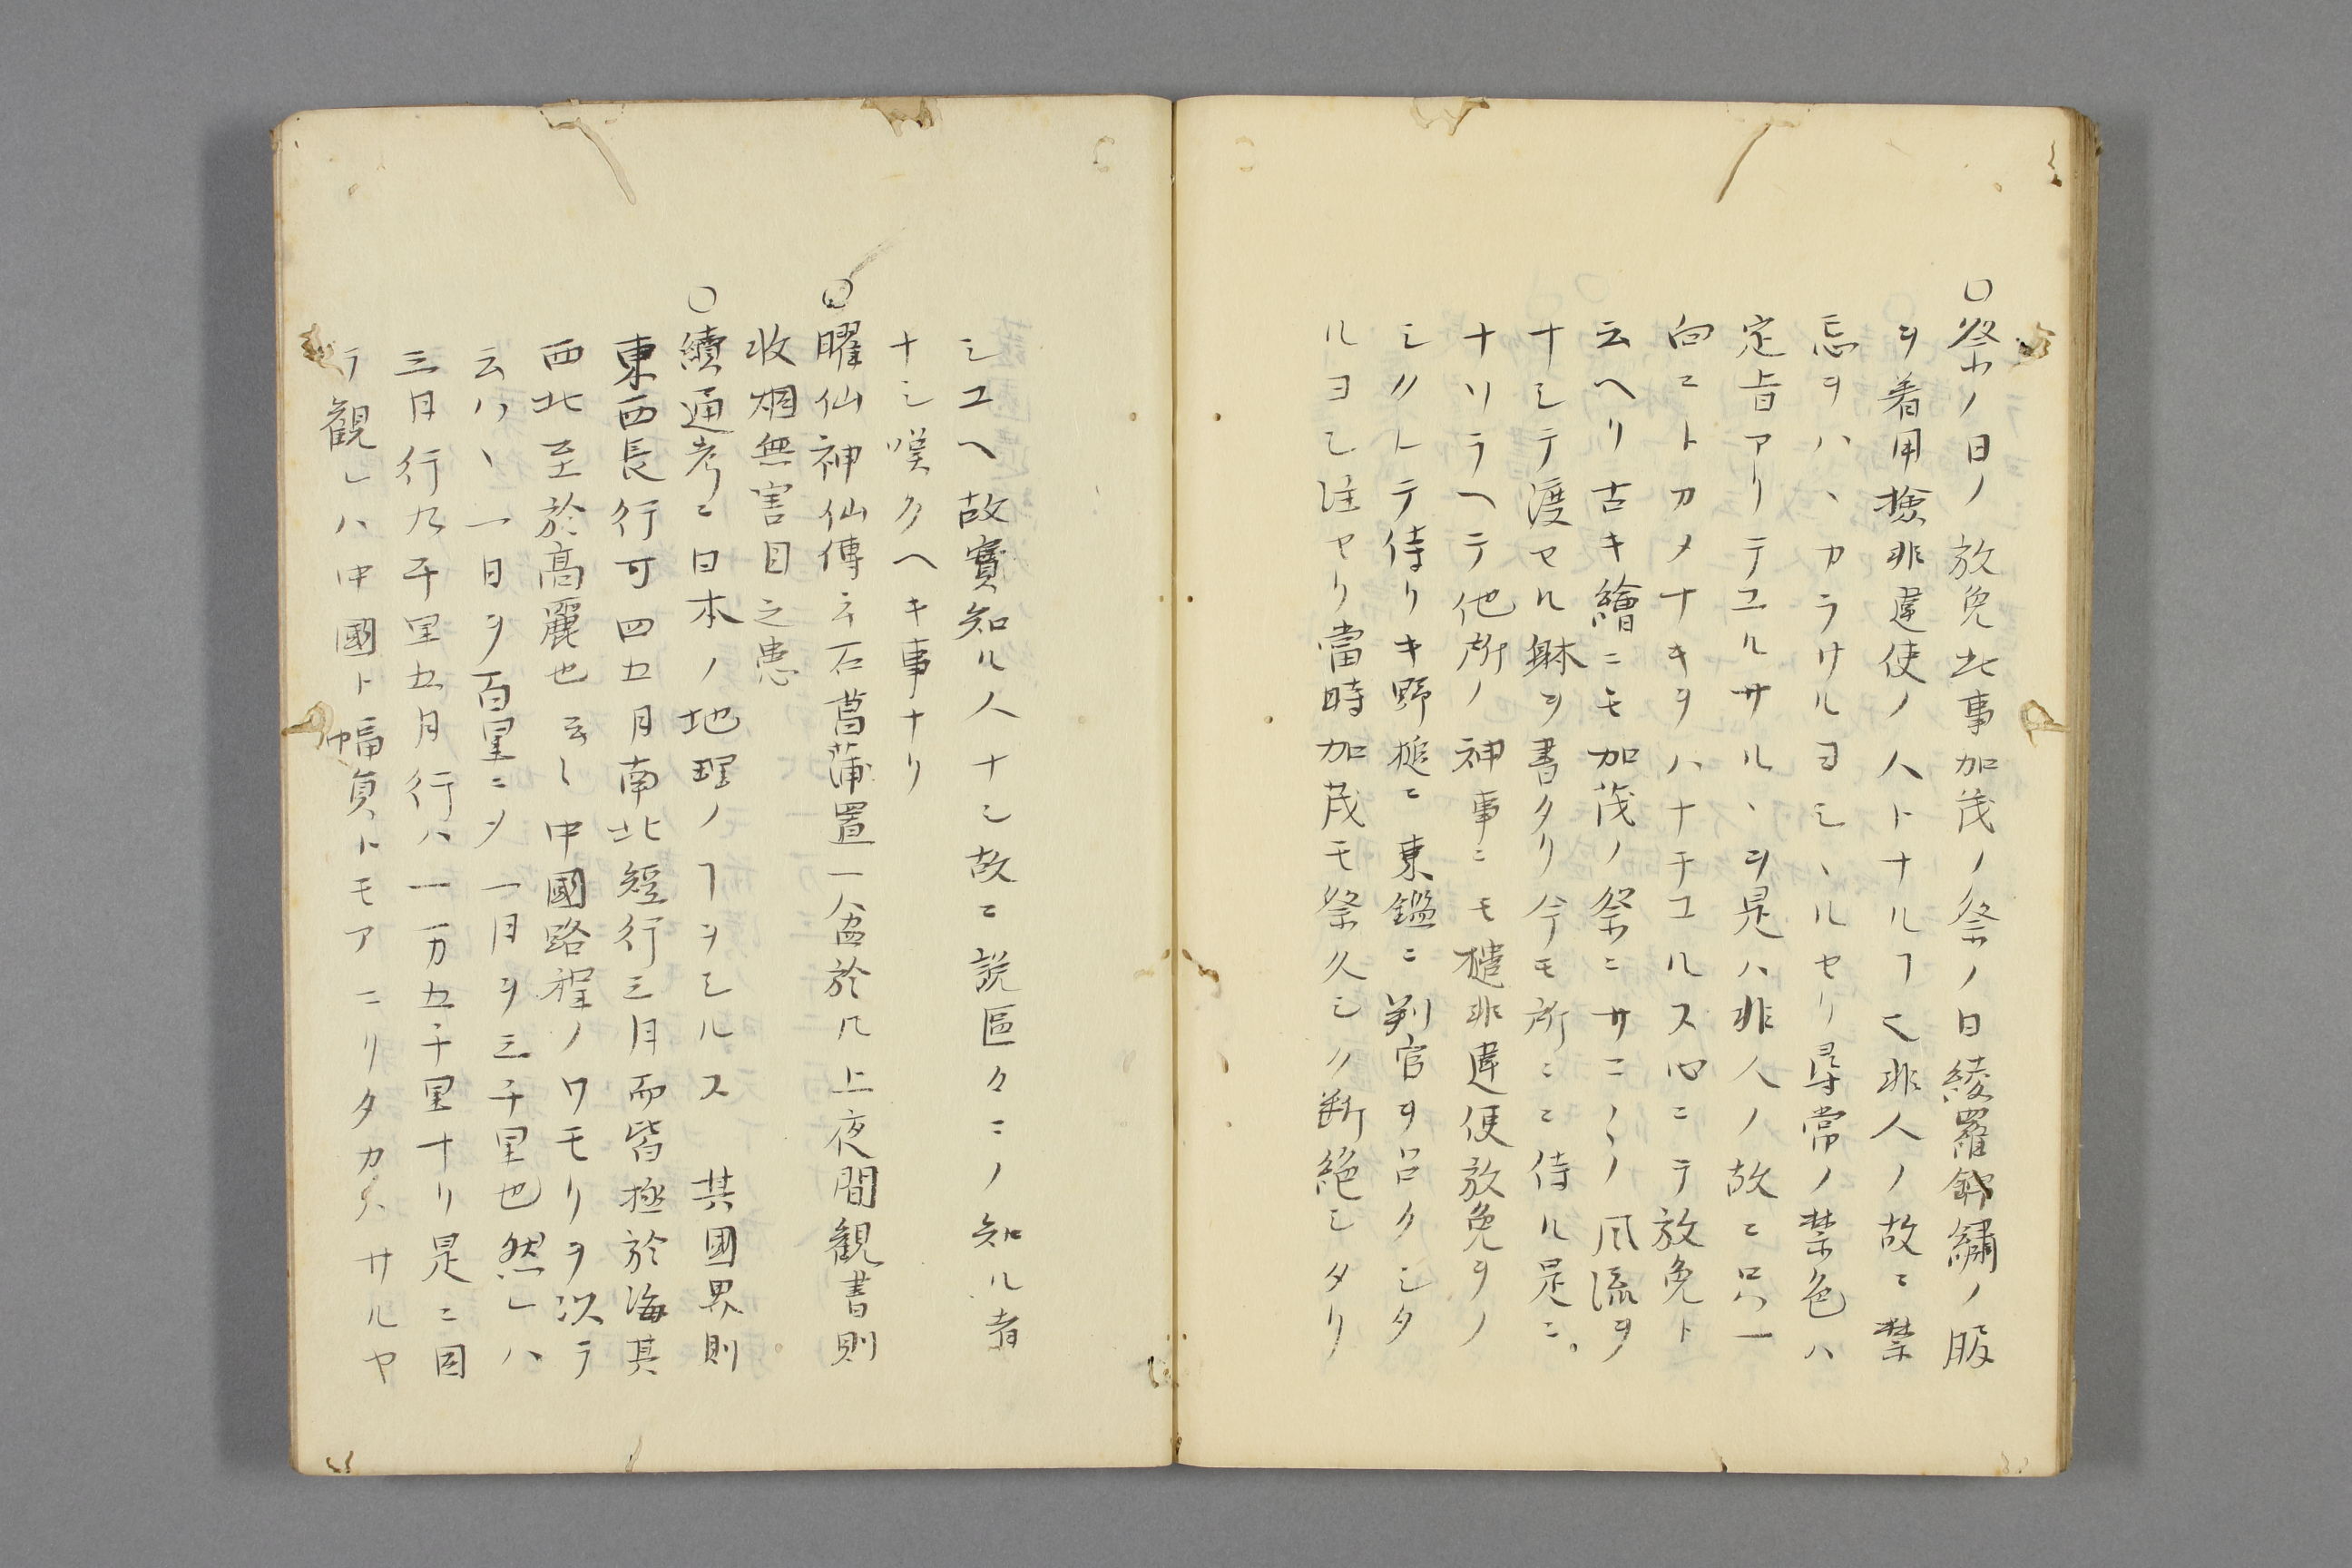 〇祭ノ日ノ放免此事加茂ノ祭ノ日綾羅錦繡ノ服
ヲ着用撿非違使ノ人トナルヿ𪜈非人ノ故ニ禁
忌ヲハヽカラサルヨシヽルセリ尋常ノ禁色ハ
定旨アリテユルサルヽヲ是ハ非人ノ故ニ只一
向ニトカメナキヲハナチユルス心ニテ放免ト
云ヘリ古キ繪ニモ加茂ノ祭ニサマ〱ノ風流ヲ
ナシテ渡セル躰ヲ書タリ今モ所ニニ侍ル是ニ
ナソラヘテ他所ノ神事ニモ撿非違使放免ヲノ
シントテ侍リキ野槌ニ東鑑ニ判官ヲ召クシタ
ルヨシ注セリ當時加茂モ祭久シク断絶シタリ
シユヘ故實知ル人ナシ故ニ説區々ニノ知ル者
ナシ嘆クヘキ事ナリ
〇臞仙神仙傳云石菖蒲置一盆於几上夜間觀書則
收烟無害目之患
〇續通考ニ日本ノ地理ノヿヲシルス 其國界則
東西長行可四五月南北短行三月而皆極於海其
西北至於高麗也云〻中國路程ノワモリヲ以テ
云ハヽ一日ヲ百里ニメ一月ヲ三千里也然レハ
三月行九千里五月行ハ一万五千里ナリ是ニ因
テ觀レハ中國ト幅員トモアマリタカハサルヤ